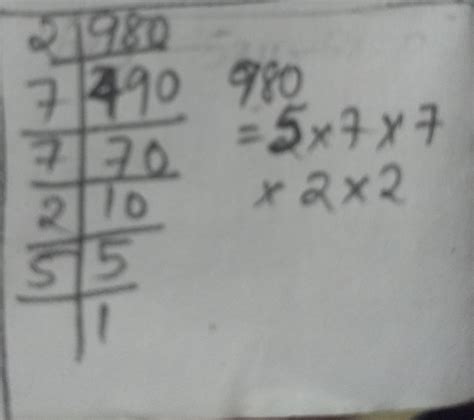 2 | 980
7 | 490
7 | 70
2 | 10
5 | 5
1
980
= 5 × 7 × 7
× 2 × 2